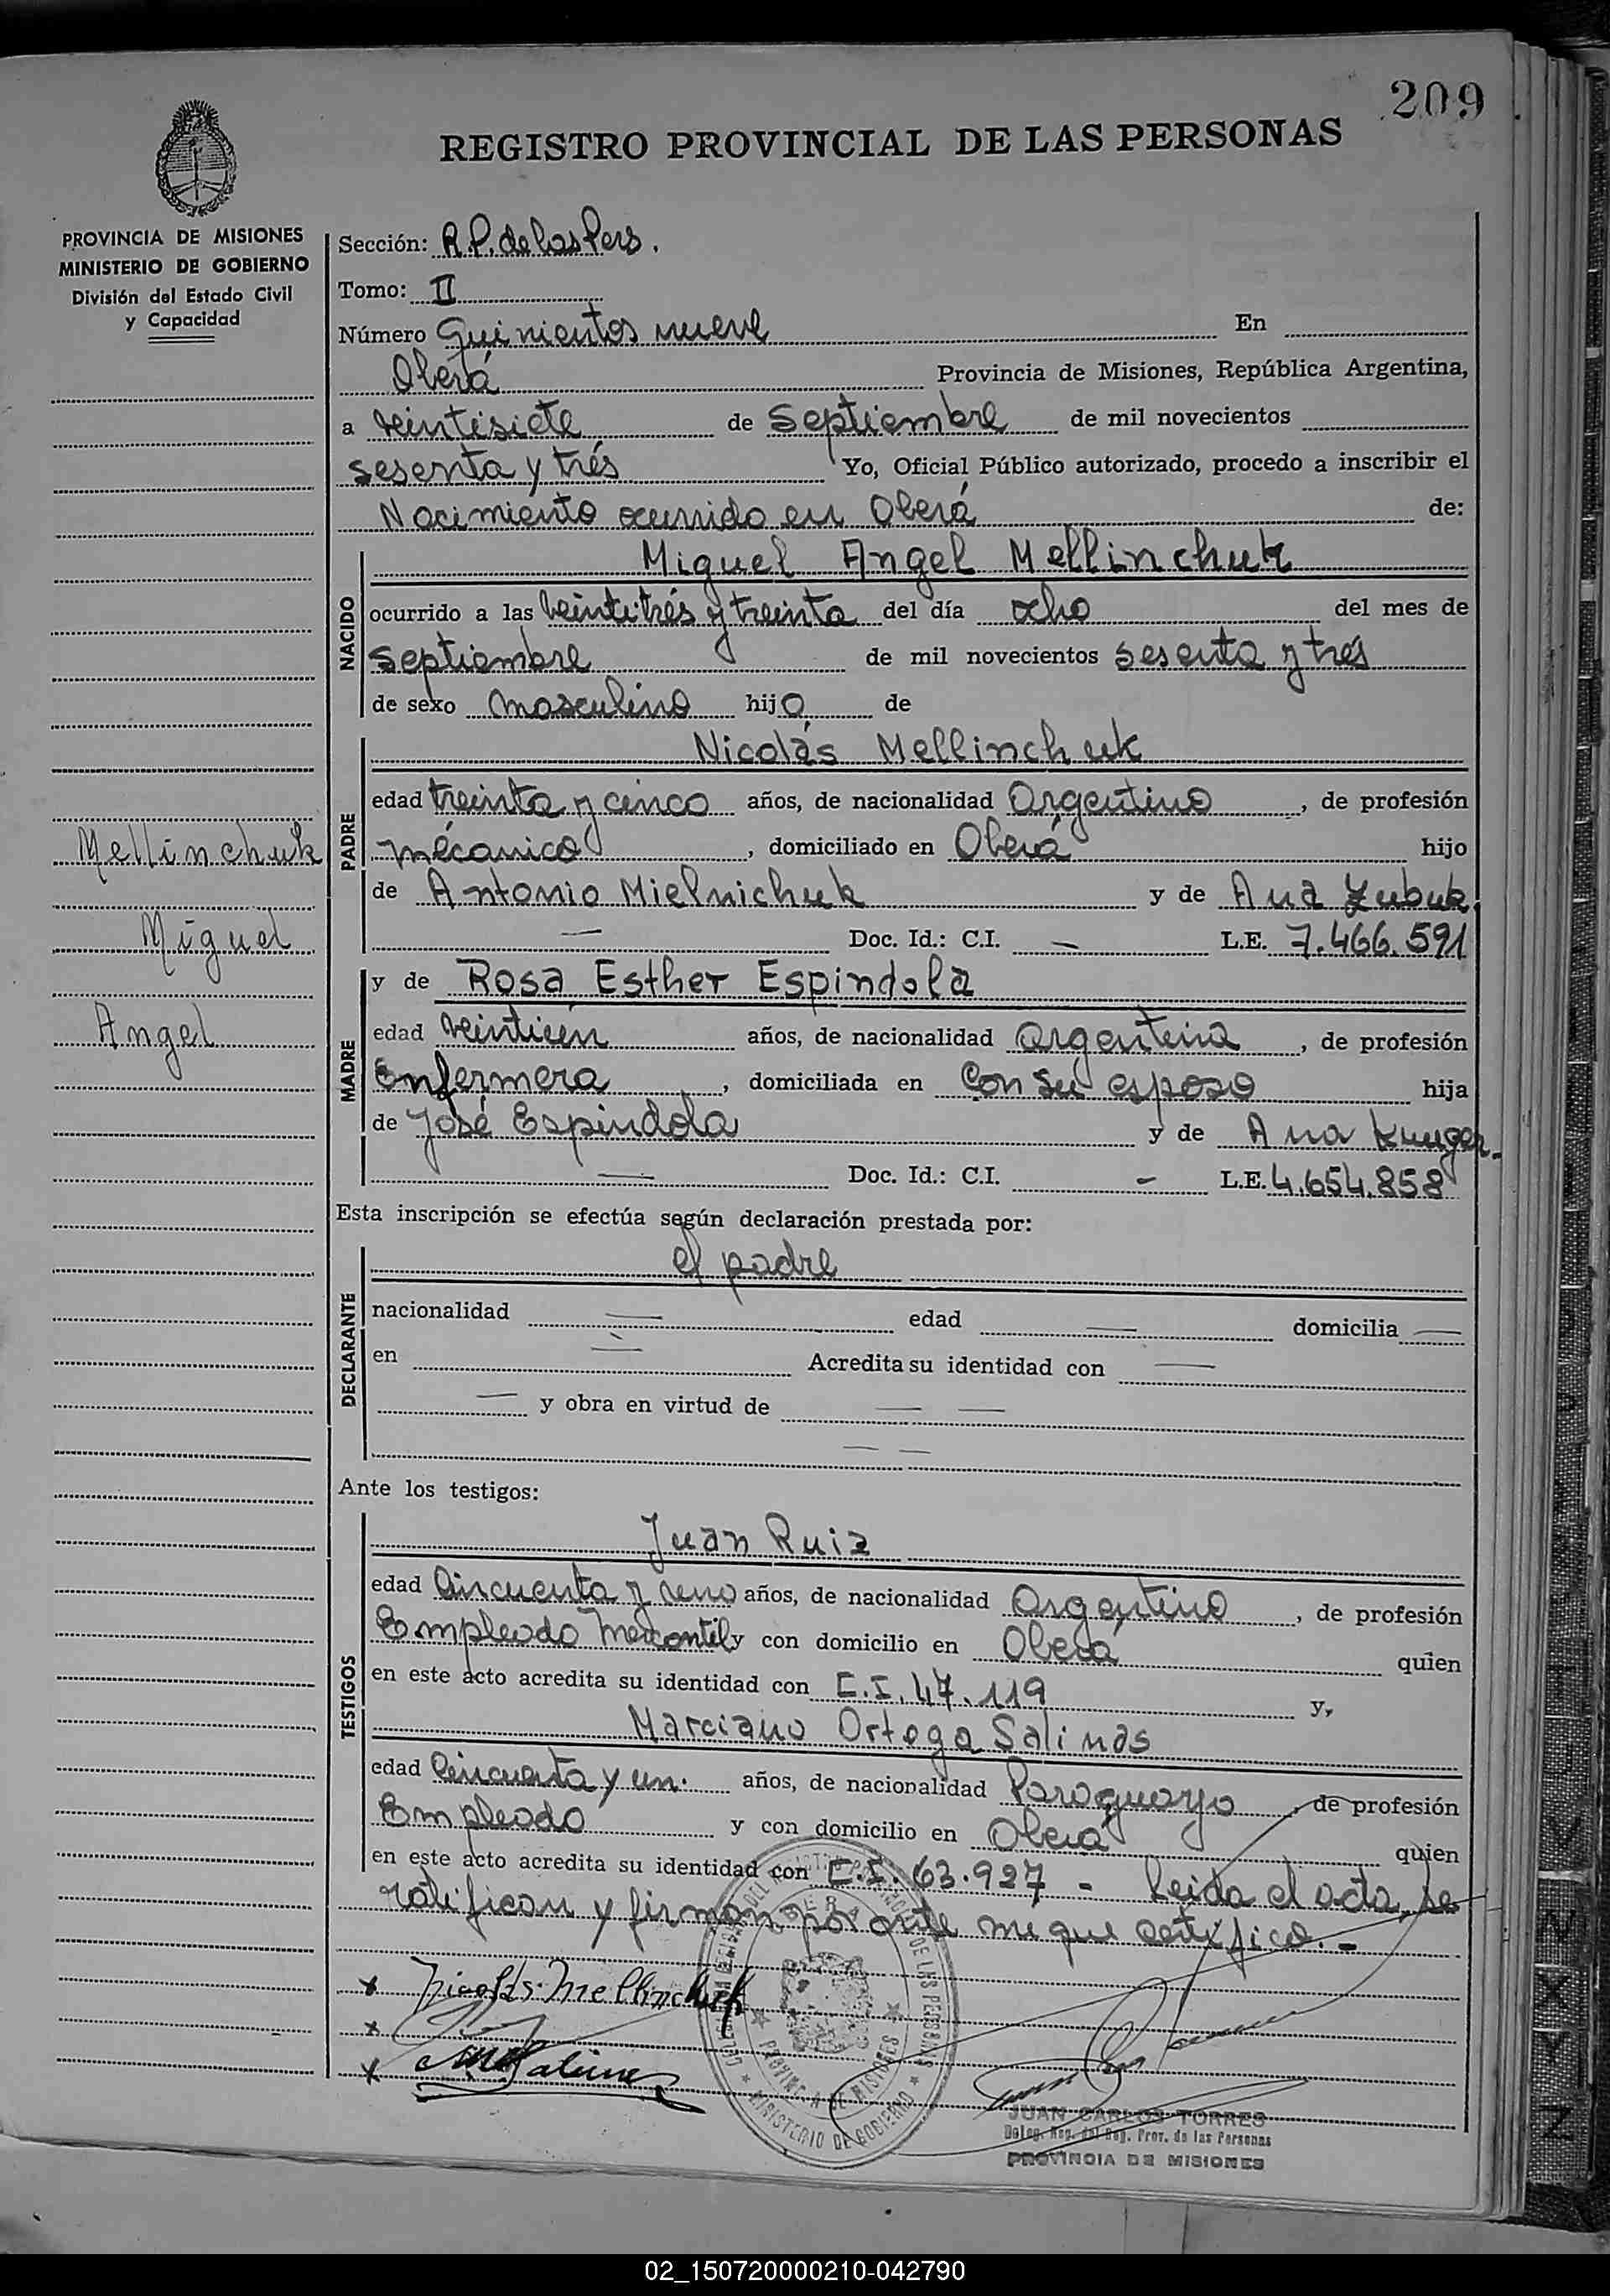 209
REGISTRO PROVINCIAL DE LAS PERSONAS
PROVINCIA DE MISIONES
MINISTERIO DE GOBIERNO
División del Estado Civil
y Capacidad
Mellinchuk
Miguel
Angel
Sección: R.P. de las Pers.
Tomo: II
Número Quinientos nueve En
Oberá Provincia de Misiones, República Argentina,
a veintisiete de Septiembre de mil novecientos
sesenta y trés Yo, Oficial Público autorizado, procedo a inscribir el
Nacimiento ocurrido en Oberá de:
NACIDO
Miguel Angel Mellinchuk
ocurrido a las veintitrés y treinta del día ocho del mes de
Septiembre de mil novecientos sesenta y trés
de sexo masculino hijo de
PADRE
Nicolás Mellinchuk
edad treinta y cinco años, de nacionalidad Argentino, de profesión
mécanico, domiciliado en Oberá hijo
de Antonio Mielnichuk y de Ana Zubuk
— Doc. Id.: C.I. — L.E. 7.466.591
MADRE
y de Rosa Esther Espindola
edad veintiún años, de nacionalidad argentina, de profesión
Enfermera, domiciliada en Con su esposo hija
de José Espindola y de Ana
— Doc. Id.: C.I. — L.E. 4.654.858
Esta inscripción se efectúa según declaración prestada por:
DECLARANTE
el padre
nacionalidad — edad — domicilia —
en — Acredita su identidad con —
— y obra en virtud de — —
— —
Ante los testigos:
TESTIGOS
Juan Ruiz
edad Cincuenta y uno años, de nacionalidad Argentino, de profesión
Empleado Mercantil y con domicilio en Oberá quien
en este acto acredita su identidad con C.I. 47.119 y,
Marciano Ortega Salinas
edad Cincuenta y un. años, de nacionalidad Paraguayo, de profesión
Empleado y con domicilio en Oberá quien
en este acto acredita su identidad con C.I. 63.927 - Leida el acta, se
ratifican y firman por ante mi que certifico. -
x Nicolás Mellinchuk
x
x Saline
MINISTERIO DE GOBIERNO
PROVINCIA DE MISIONES
JUAN CARLOS TORRES
Deleg. Reg. del Reg. Prov. de las Personas
PROVINCIA DE MISIONES
02_150720000210-042790